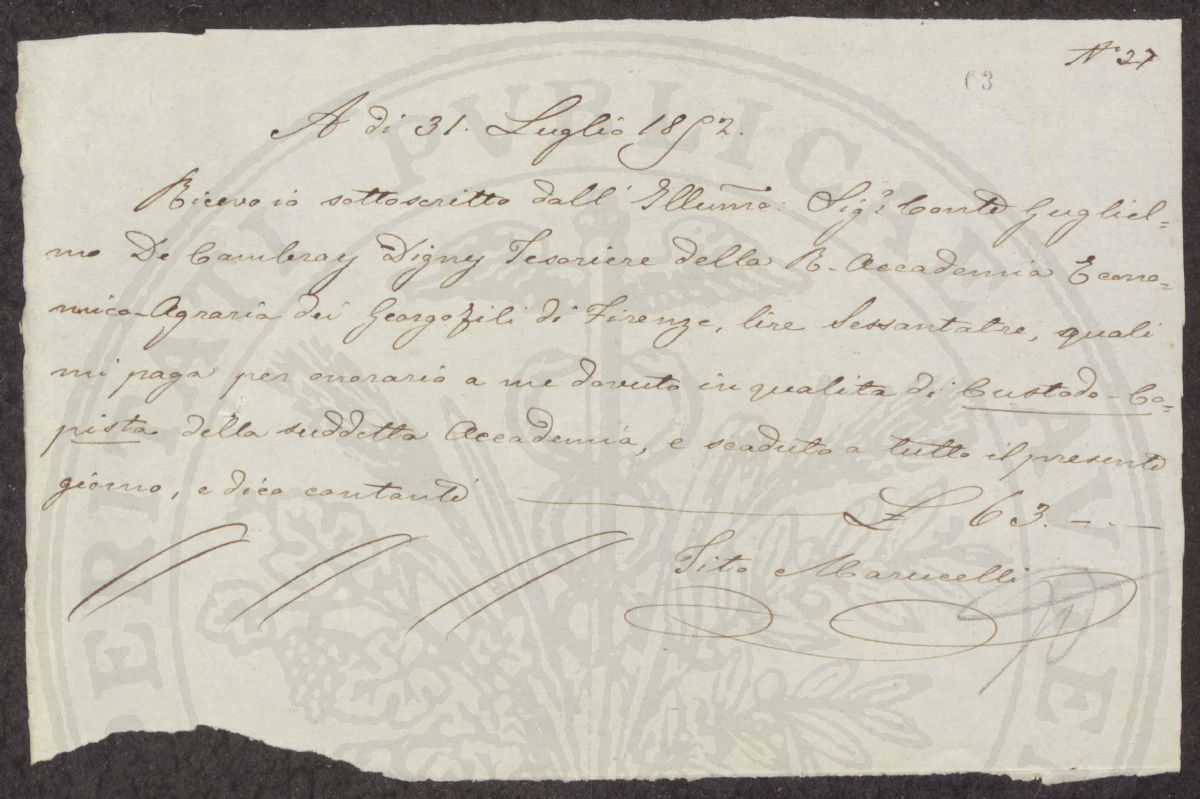 N° 27
63
A di 31. Luglio 1852.
Ricevo io sottoscritto dall' Illumo: Sigr. Conte Gugliel=
mo De Cambray Digny Tesoriere della R. Accademia Econo=
mico-Agraria dei Georgofili di Firenze, lire Sessantatre, quali
mi paga per onorario a me dovuto in qualita di Custode-Co=
pista della suddetta Accademia, e scaduto a tutto il presente
giorno, e dico contanti £ 63. - . -
Tito Marucelli
PUBLICAE
PROSPERITATI AUGENDAE